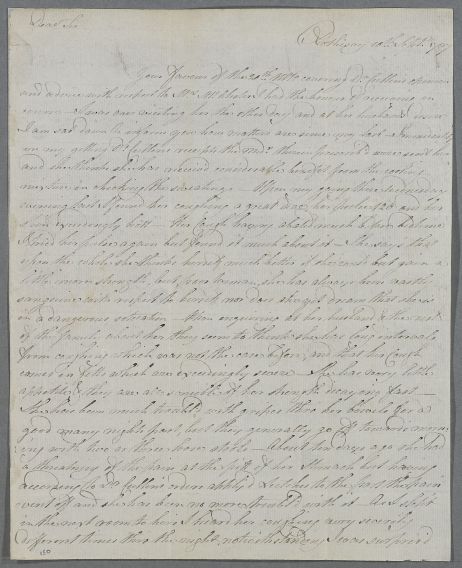 Dear Sir
Rothesay 10th Sept.
Your Favour of the 20th Ulto covering Dr Cullens opinion
and advice with respect to Mrs McAlister I had the honour of receiving in
course I was over visiting her the other day and at her husband's desire
I am sat down to inform you how matters are since my last Immediately
on my getting Dr Cullens receipts the medns therein were sent her
and she thinks she has received considerable benefit from the
mixture in checking the sweatings When my going there wednesday
evening last I found her coughing a great deal her pulse 120 and her
skin exceedingly hott Her Cough having abated much before bedtime
I tried her pulse again but found it much about it She says that
upon the whole she thinks herself much better if she could but gain a
little more strength, but poor woman, she has always been vastly
sanguine with respect to herself nor does she yet dream that she is
in a dangerous situation Upon enquiring at her husband & the rest
of the family about her they seem to think she has long intervals
from coughing which was not the case before, and that her Cough
comes in fitts which are exceedingly severe She has very little
appetite & they are all sensible of her strength decaying fast
She has been much troubled with gripes thro' her bowels for a
good many nights past, but they generally go off towards morn
ing with two or three loose stools About ten days ago she had
a threatening of the pain at the pit of her Stomach but having
according to Dr Cullens orders applyd Leeches to the part the pain
went off and she has been no more troubled with it As I slept
in the next room to her I heard her coughing very severely
different times thro the night, notwithstanding I was surprised
150